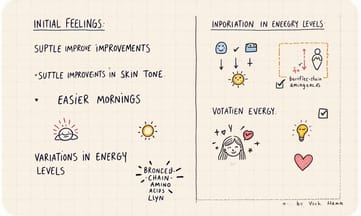 INITIAL FEELINGS:
SUPTLE IMPROVE IMPROVEMENTS
-SUTTLE IMPROVENTS IN SKIN TONE.
• EASIER MORNINGS
VARIATIONS IN ENERGY
LEVELS
BRONCED-
CHAIN-
AMINO
ACIDS
LIYN
INPORIATION IN ENERGRY LEVELS
VOTATIEN EVERGY.